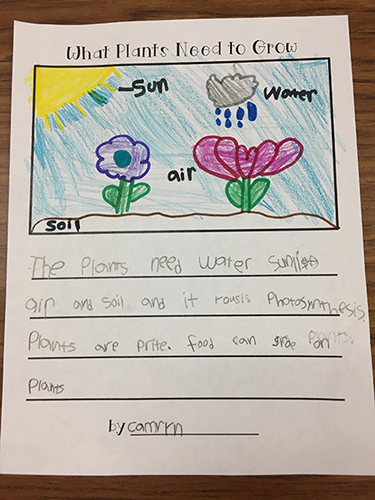 What Plants Need to Grow
Sun
Water
air
Soil
The Plants need Water
air and soil and it rousis Photosynthesis.
Plants are prite. food can on plants.
Plants
by camrrn